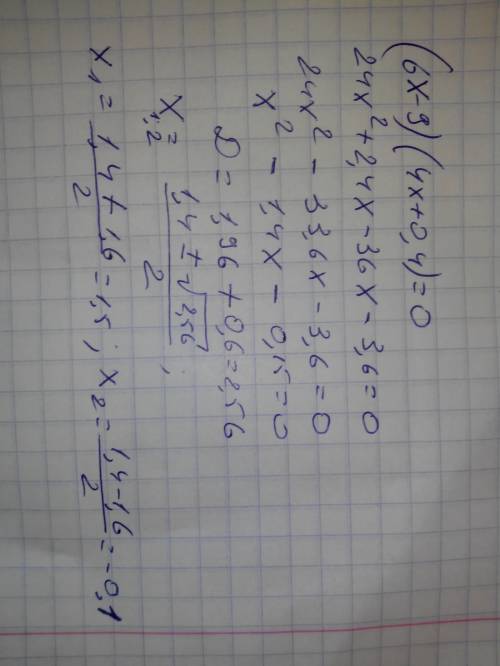 (6x-9)(4x+0,4)=0
24x²+2,4x-36x-3,6=0
24x²-33,6x-3,6=0
x²-1,4x-0,15=0
D=1,96+0,6=2,56
x₁,₂=(1,4±√2,56)/2;
x₁=(1,4+1,6)/2=1,5; x₂=(1,4-1,6)/2=-0,1